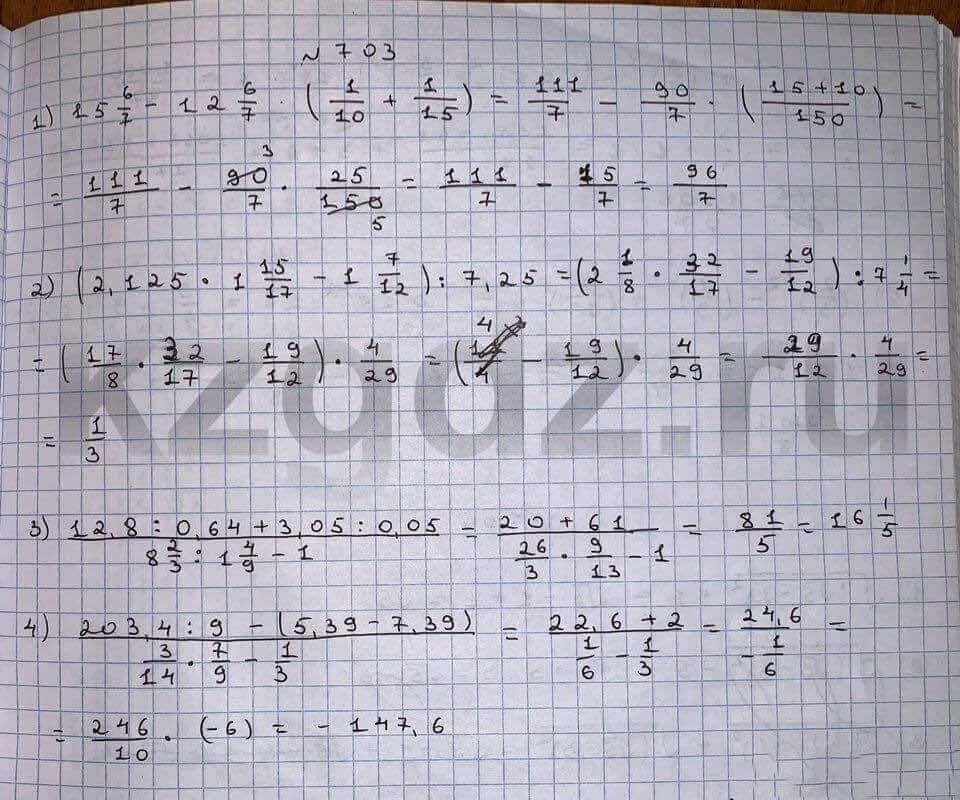 № 703
1) 15 6/7 - 12 6/7 · (1/10 + 1/15) = 111/7 - 90/7 · (15+10/150) =
= 111/7 - 90/7 3 · 25/150 5 = 111/7 - 15/7 = 96/7
2) (2,125 · 1 15/17 - 1 7/12) : 7,25 = (2 1/8 · 32/17 - 19/12) : 7 1/4 =
= (17/8 · 32/17 - 19/12) · 4/29 = (4 - 19/12) · 4/29 = 29/12 · 4/29 =
= 1/3
kzgdz.ru
3) 12,8 : 0,64 + 3,05 : 0,05 / 8 2/3 : 1 4/9 - 1 = 20 + 61 / 26/3 · 9/13 - 1 = 81/5 = 16 1/5
4) 203,4 : 9 - (5,39 - 7,39) / 3/14 · 7/9 - 1/3 = 22,6 + 2 / 1/6 - 1/3 = 24,6 / - 1/6 =
= 246/10 · (-6) = - 147,6